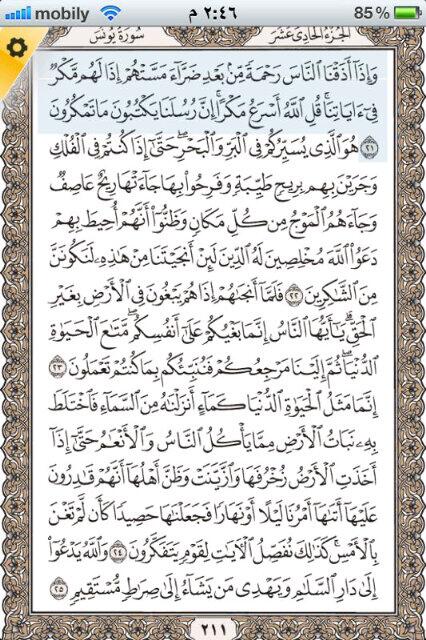 mobily ٢:٤٦ م 85 %
سُورَةُ يُونُسَ الجُزءُ الحَادِى عَشَرَ
وَإِذَآ أَذَقْنَا ٱلنَّاسَ رَحْمَةً مِّنۢ بَعْدِ ضَرَّآءَ مَسَّتْهُمْ إِذَا لَهُم مَّكْرٌ
فِىٓ ءَايَاتِنَا ۚ قُلِ ٱللَّهُ أَسْرَعُ مَكْرًا ۚ إِنَّ رُسُلَنَا يَكْتُبُونَ مَا تَمْكُرُونَ
٢١ هُوَ ٱلَّذِى يُسَيِّرُكُمْ فِى ٱلْبَرِّ وَٱلْبَحْرِ ۖ حَتَّىٰٓ إِذَا كُنتُمْ فِى ٱلْفُلْكِ
وَجَرَيْنَ بِهِم بِرِيحٍ طَيِّبَةٍ وَفَرِحُوا۟ بِهَا جَآءَتْهَا رِيحٌ عَاصِفٌ
وَجَآءَهُمُ ٱلْمَوْجُ مِن كُلِّ مَكَانٍ وَظَنُّوٓا۟ أَنَّهُمْ أُحِيطَ بِهِمْ
دَعَوُا۟ ٱللَّهَ مُخْلِصِينَ لَهُ ٱلدِّينَ لَئِنْ أَنجَيْتَنَا مِنْ هَٰذِهِۦ لَنَكُونَنَّ
مِنَ ٱلشَّٰكِرِينَ ٢٢ فَلَمَّآ أَنجَىٰهُمْ إِذَا هُمْ يَبْغُونَ فِى ٱلْأَرْضِ بِغَيْرِ
ٱلْحَقِّ ۗ يَٰٓأَيُّهَا ٱلنَّاسُ إِنَّمَا بَغْيُكُمْ عَلَىٰٓ أَنفُسِكُم ۖ مَّتَٰعَ ٱلْحَيَوٰةِ
ٱلدُّنْيَا ۖ ثُمَّ إِلَيْنَا مَرْجِعُكُمْ فَنُنَبِّئُكُم بِمَا كُنتُمْ تَعْمَلُونَ ٢٣
إِنَّمَا مَثَلُ ٱلْحَيَوٰةِ ٱلدُّنْيَا كَمَآءٍ أَنزَلْنَٰهُ مِنَ ٱلسَّمَآءِ فَٱخْتَلَطَ
بِهِۦ نَبَاتُ ٱلْأَرْضِ مِمَّا يَأْكُلُ ٱلنَّاسُ وَٱلْأَنْعَٰمُ حَتَّىٰٓ إِذَآ
أَخَذَتِ ٱلْأَرْضُ زُخْرُفَهَا وَٱزَّيَّنَتْ وَظَنَّ أَهْلُهَآ أَنَّهُمْ قَٰدِرُونَ
عَلَيْهَآ أَتَىٰهَآ أَمْرُنَا لَيْلًا أَوْ نَهَارًا فَجَعَلْنَٰهَا حَصِيدًا كَأَن لَّمْ تَغْنَ
بِٱلْأَمْسِ ۚ كَذَٰلِكَ نُفَصِّلُ ٱلْءَايَٰتِ لِقَوْمٍ يَتَفَكَّرُونَ ٢٤ وَٱللَّهُ يَدْعُوٓا۟
إِلَىٰ دَارِ ٱلسَّلَٰمِ وَيَهْدِى مَن يَشَآءُ إِلَىٰ صِرَٰطٍ مُّسْتَقِيمٍ ٢٥
٢١١